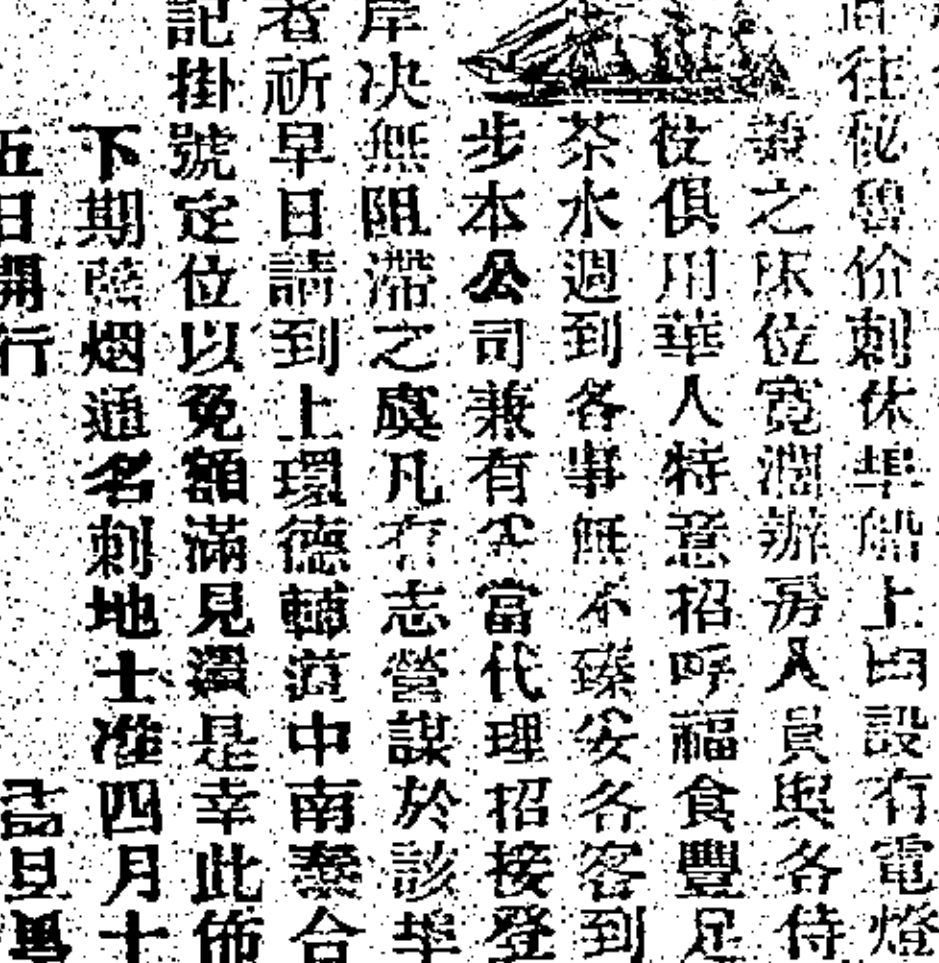 往秘魯价剌休埠船上均設有電燈
兼之床位寬濶辦房人員與各侍
役俱用華人特意招呼福食豐足
茶水週到各事無不臻妥各客到
步本公司兼有妥當代理招接登
岸决無阻滯之虞凡有志營謀於該埠
者祈早日請到上環德輔道中南泰合
記掛號定位以免額滿見遺是幸此佈
下期 烟通名剌地士准四月十
五日開行